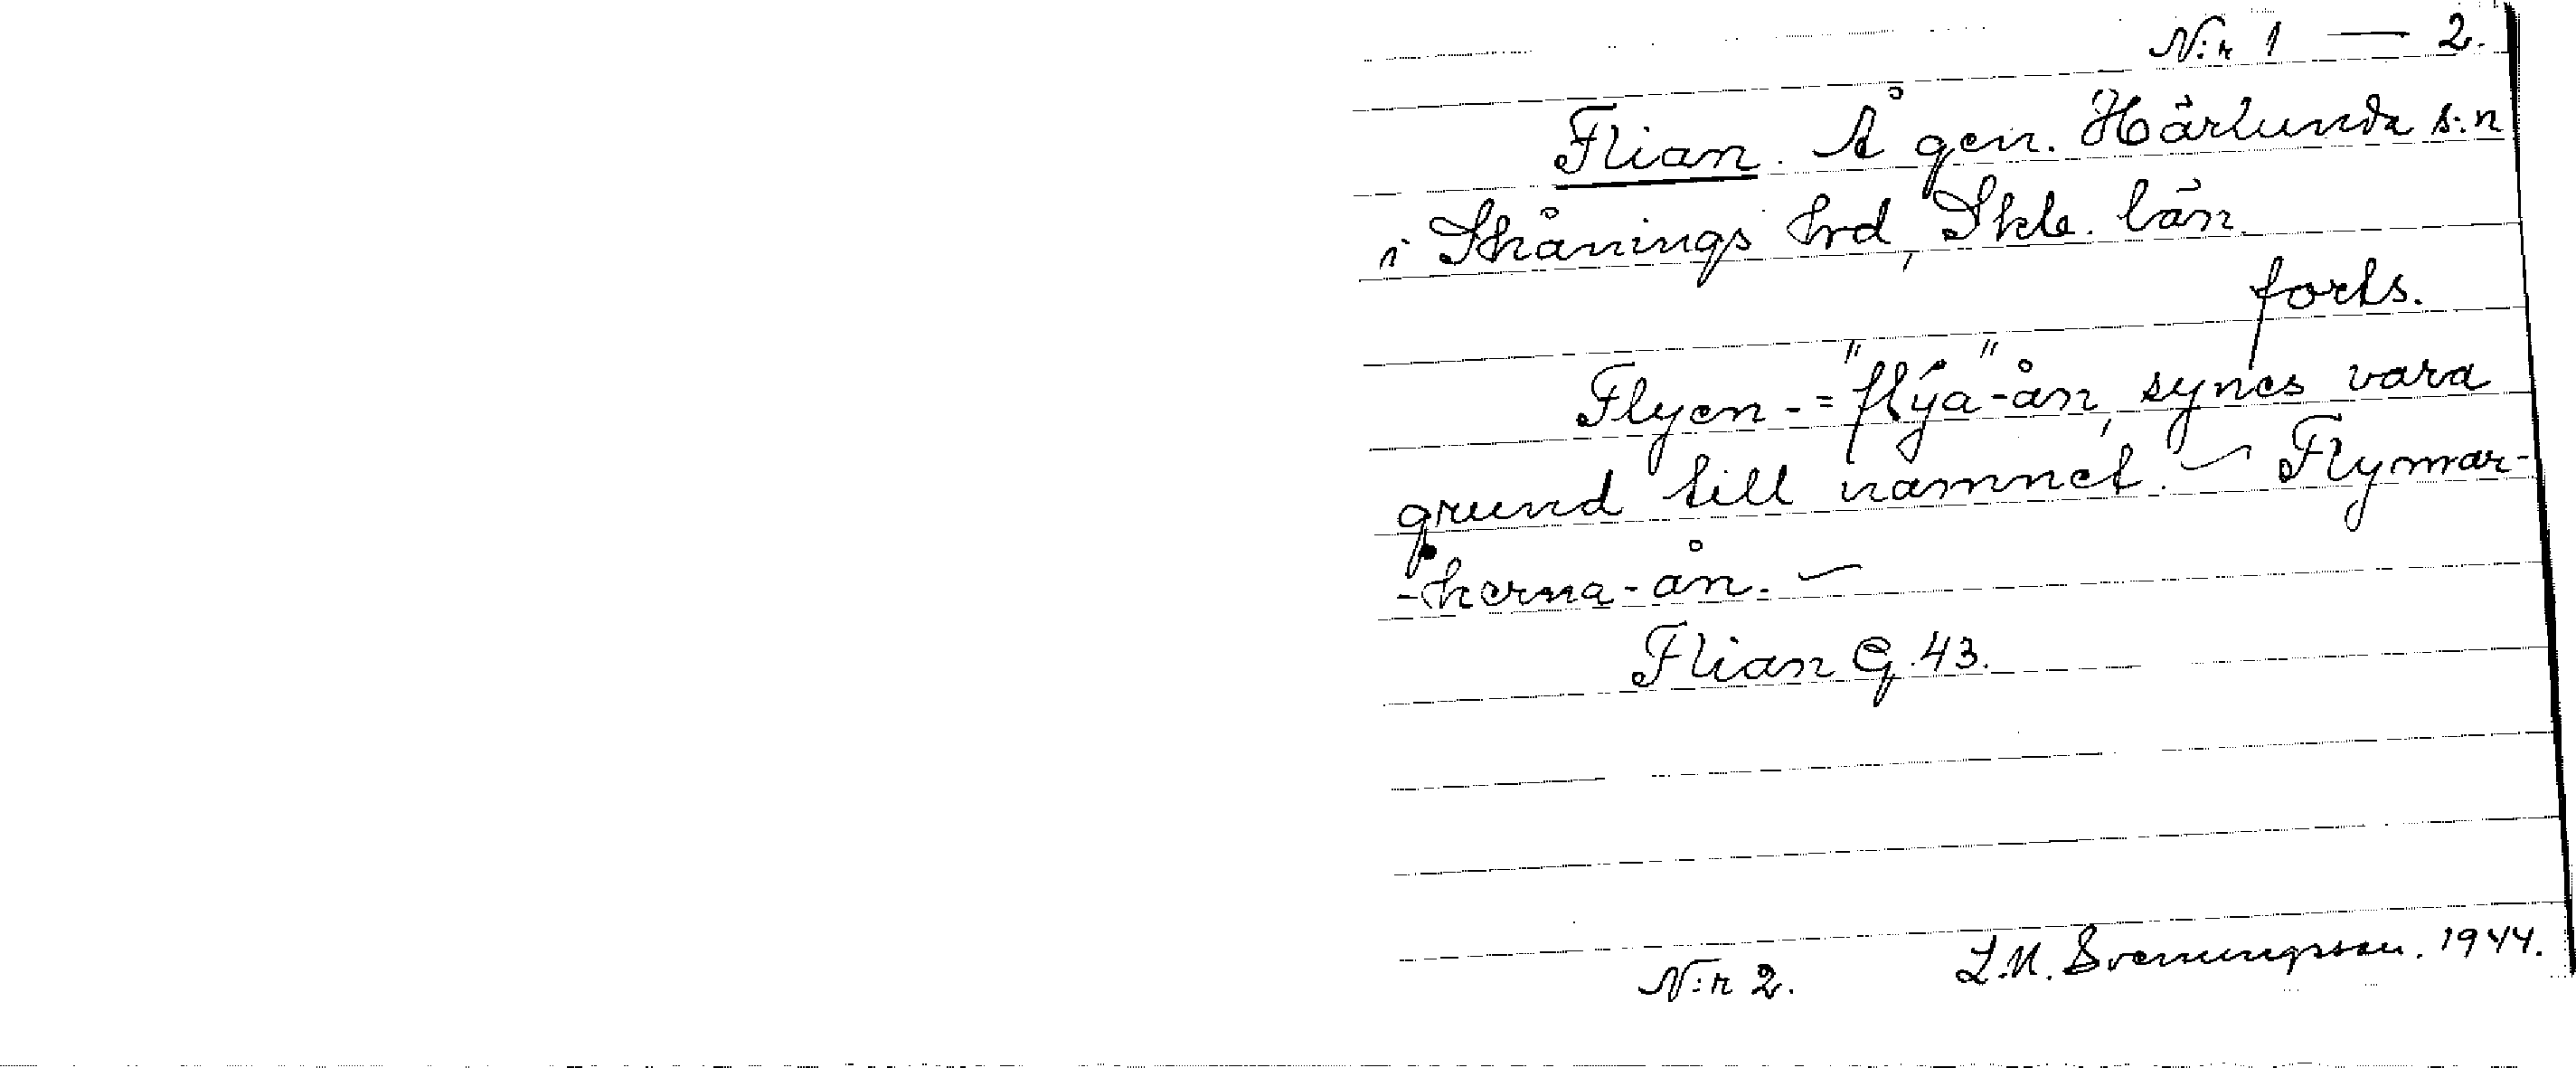 N:r 1 — 2.
Flian. Å gen. Härlunda s:n
i Skånings hrd, Skb. län.
forts.
Flyen- = "flýa"-ån, synes vara
grund till namnet. ~ Flymar-
-kerna-ån. ~
Flian G. 43.
N:r 2. L.M. Svenungsson. 1944.